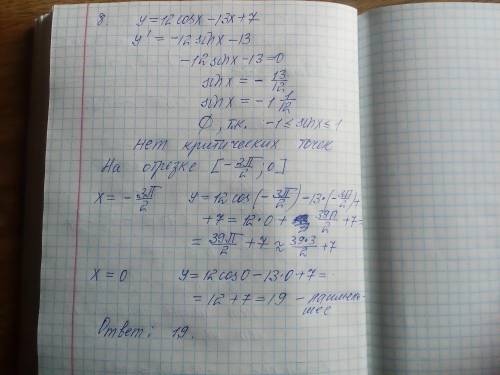 8. y = 12 cosx - 13x + 7
y' = -12 sinx - 13
-12 sinx - 13 = 0
sinx = - 13/12
sinx = -1 1/12
∅, т.к. -1 ≤ sinx ≤ 1
Нет критических точек
На отрезке [-3π/2; 0]
x = - 3π/2 y = 12 cos(-3π/2) - 13·(-3π/2) +
+ 7 = 12·0 + 39π/2 + 7 =
= 39π/2 + 7 ≈ 39·3/2 + 7
x = 0 y = 12 cos0 - 13·0 + 7 =
= 12 + 7 = 19 - наимень-
шее
Ответ: 19.